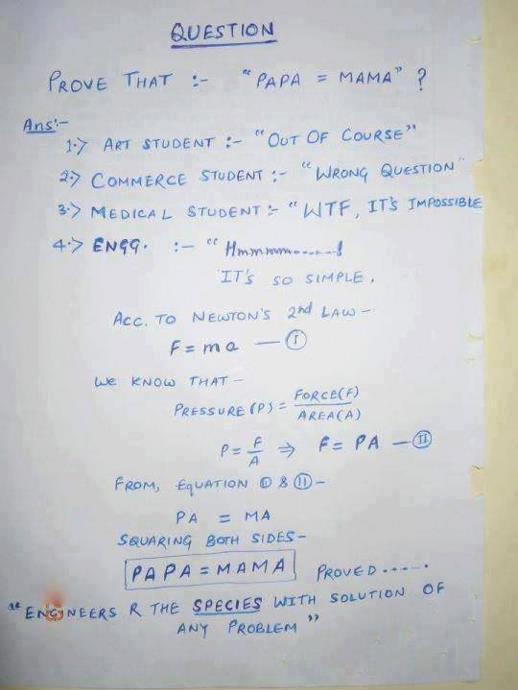 QUESTION
PROVE THAT :- "PAPA = MAMA" ?
Ans:-
1.> ART STUDENT :- "OUT OF COURSE"
2.> COMMERCE STUDENT :- "WRONG QUESTION"
3.> MEDICAL STUDENT :- "WTF, IT'S IMPOSSIBLE
4.> ENGG. :- "Hmmmmm......!
IT'S SO SIMPLE.
ACC. TO NEWTON'S 2nd LAW -
F = ma — Ⓘ
WE KNOW THAT -
PRESSURE (P) = FORCE(F) / AREA(A)
P = F / A ⇒ F = PA — Ⓘⓘ
FROM, EQUATION Ⓘ & Ⓘⓘ -
PA = MA
SQUARING BOTH SIDES -
PAPA = MAMA PROVED .....
"ENGINEERS R THE SPECIES WITH SOLUTION OF
ANY PROBLEM"